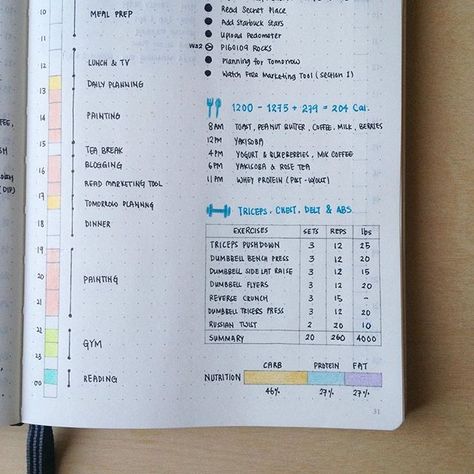 10
MEAL PREP
11
12
LUNCH & TV
13
DAILY PLANNING
14
PAINTING
15
TEA BREAK
BLOGGING
16
READ MARKETING TOOL
17
TOMORROW PLANNING
18
DINNER
19
20
PAINTING
21
22
GYM
23
00
READING
Read Secret Place
Add Starbuck Stars
Upload Pedometer
W22 P160109 Rocks
Planning for Tomorrow
Watch Free Marketing Tool (Section 1)
1200 - 1275 + 279 = 204 Cal.
8AM TOAST, PEANUT BUTTER, COFFEE, MILK, BERRIES
12PM YAKISOBA
4PM YOGURT & BLUEBERRIES, MILK COFFEE
6PM YAKISOBA & ROSE TEA
11PM WHEY PROTEIN (POST-WORKOUT)
TRICEPS, CHEST, DELT & ABS
EXERCISES SETS REPS lbs
TRICEPS PUSHDOWN 3 12 25
DUMBBELL BENCH PRESS 3 12 20
DUMBBELL SIDE LAT RAISE 3 12 15
DUMBBELL FLYERS 3 12 20
REVERSE CRUNCH 3 15 -
DUMBELL TRICEPS PRESS 3 12 20
RUSSIAN TWIST 2 20 10
SUMMARY 20 260 4000
CARB PROTEIN FAT
NUTRITION
46% 27% 27%
31